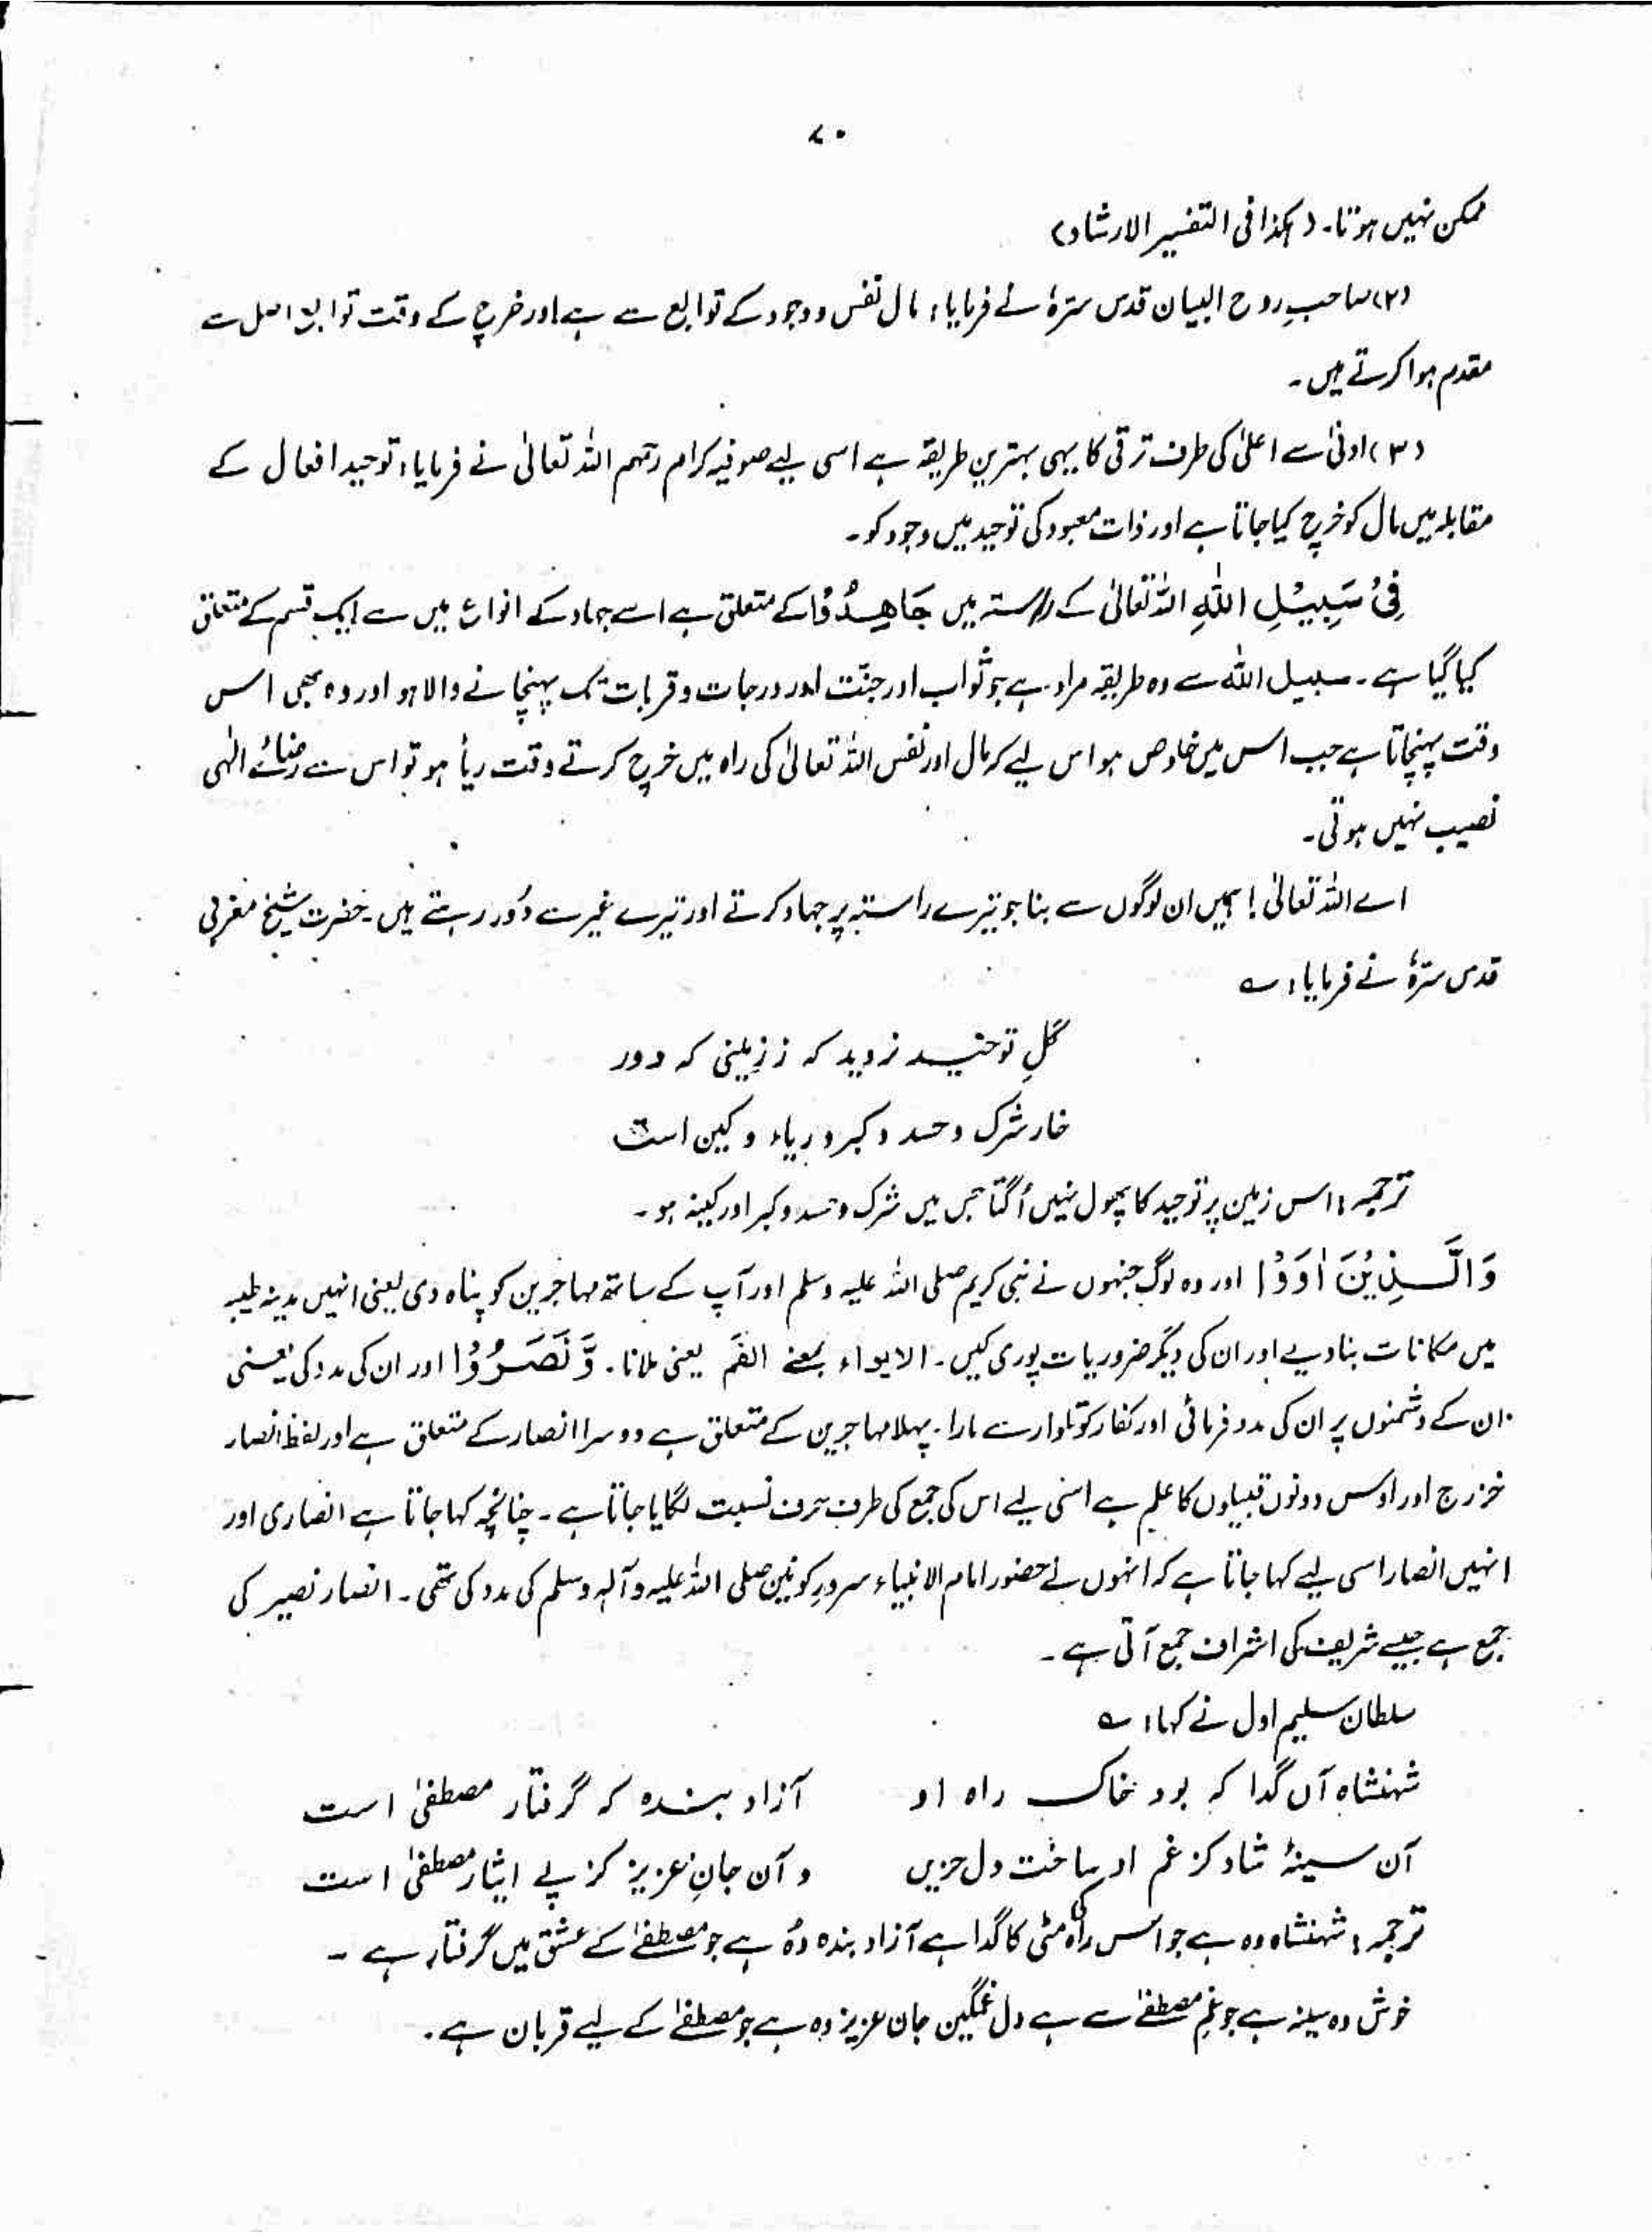 ۷۰
ممکن نہیں ہوتا۔ (ہکذا فی التفسیر الارشاد)
(۲) صاحبِ روح البیان قدس سرّہٗ نے فرمایا: مال نفس و وجود کے توابع سے ہے اور خرچ کے وقت توابع اصل سے
مقدم ہوا کرتے ہیں۔
(۳) ادنیٰ سے اعلیٰ کی طرف ترقی کا یہی بہترین طریقہ ہے اسی لیے صوفیہ کرام رحمہم اللہ تعالیٰ نے فرمایا: توحید افعال کے
مقابلہ میں مال کو خرچ کیا جاتا ہے اور ذات معبود کی توحید میں وجود کو۔
فِیْ سَبِیْلِ اللّٰہِ اللہ تعالیٰ کے راستہ میں جَاھِدُوْا کے متعلق ہے اسے جہاد کے انواع میں سے ایک قسم کے متعلق
کیا گیا ہے۔ سبیل اللہ سے وہ طریقہ مراد ہے جو ثواب اور جنّت اور درجات و قربات تک پہنچانے والا ہو اور وہ بھی اس
وقت پہنچاتا ہے جب اس میں خلوص ہو اس لیے کہ مال اور نفس اللہ تعالیٰ کی راہ میں خرچ کرتے وقت ریأ ہو تو اس سے رضائے الٰہی
نصیب نہیں ہوتی۔
اے اللہ تعالیٰ! ہمیں ان لوگوں سے بنا جو تیرے راستہ پر جہاد کرتے اور تیرے غیر سے دُور رہتے ہیں۔ حضرت شیخ مغربی
قدس سرّہٗ نے فرمایا: ؎
گلِ توحید نروید کہ ز زمینی کہ دور
خار شرک و حسد و کبر و ریاء و کین است
ترجمہ: اس زمین پر توحید کا پھول نہیں اُگتا جس میں شرک و حسد و کبر اور کینہ ہو۔
وَالَّذِیْنَ اٰوَوْا اور وہ لوگ جنہوں نے نبی کریم صلی اللہ علیہ وسلم اور آپ کے ساتھ مہاجرین کو پناہ دی یعنی انہیں مدینہ طیبہ
میں مکانات بنا دیے اور ان کی دیگر ضروریات پوری کیں۔ الایواء بمعنے الضم یعنی ملانا۔ وَّنَصَرُوْا اور ان کی مدد کی یعنی
ان کے دشمنوں پر ان کی مدد فرمائی اور کفار کو تلوار سے مارا۔ پہلا مہاجرین کے متعلق ہے دوسرا انصار کے متعلق ہے اور لفظ انصار
خزرج اور اوس دونوں قبیلوں کا علم ہے اسی لیے اس کی جمع کی طرف حرف نسبت لگایا جاتا ہے۔ چنانچہ کہا جاتا ہے انصاری اور
انہیں انصار اسی لیے کہا جاتا ہے کہ انہوں نے حضور امام الانبیاء سرورِ کونین صلی اللہ علیہ وآلہٖ وسلم کی مدد کی تھی۔ انصار نصیر کی
جمع ہے جیسے شریف کی اشراف جمع آتی ہے۔
سلطان سلیم اول نے کہا: ؎
شہنشاہ آں گدا کہ بود خاک راہ او آزاد بندہ کہ گرفتار مصطفیٰ است
آن سینۂ شاد کز غم او ساخت دل حزیں و آن جانِ عزیز کز پے ایثار مصطفیٰ است
ترجمہ: شہنشاہ وہ ہے جو اس راہ کی مٹی کا گدا ہے آزاد بندہ وُہ ہے جو مصطفےٰ کے عشق میں گرفتار ہے ۔
خوش وہ سینہ ہے جو غمِ مصطفےٰ سے ہے دل غمگین جان عزیز وہ ہے جو مصطفےٰ کے لیے قربان ہے۔